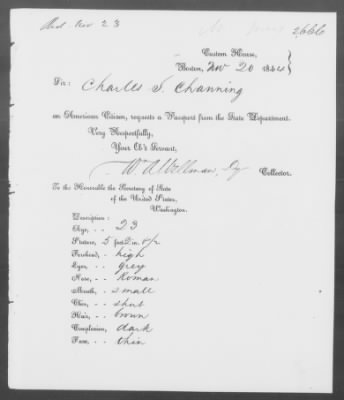 Nov 23
2666
Custom House,
Boston, Nov 20 1864
Sir:
Charles S. Channing
an American Citizen, requests a Passport from the State Department.
Very Respectfully,
Your Ob't Servant,
Wm A Wellman, Dy Collector.
To the Honorable the Secretary of State
of the United States,
Washington.
Description:
Age, 23
Stature, 5 feet 2 in.
Forehead, high
Eyes, grey
Nose, Roman
Mouth, small
Chin, short
Hair, brown
Complexion, dark
Face, thin